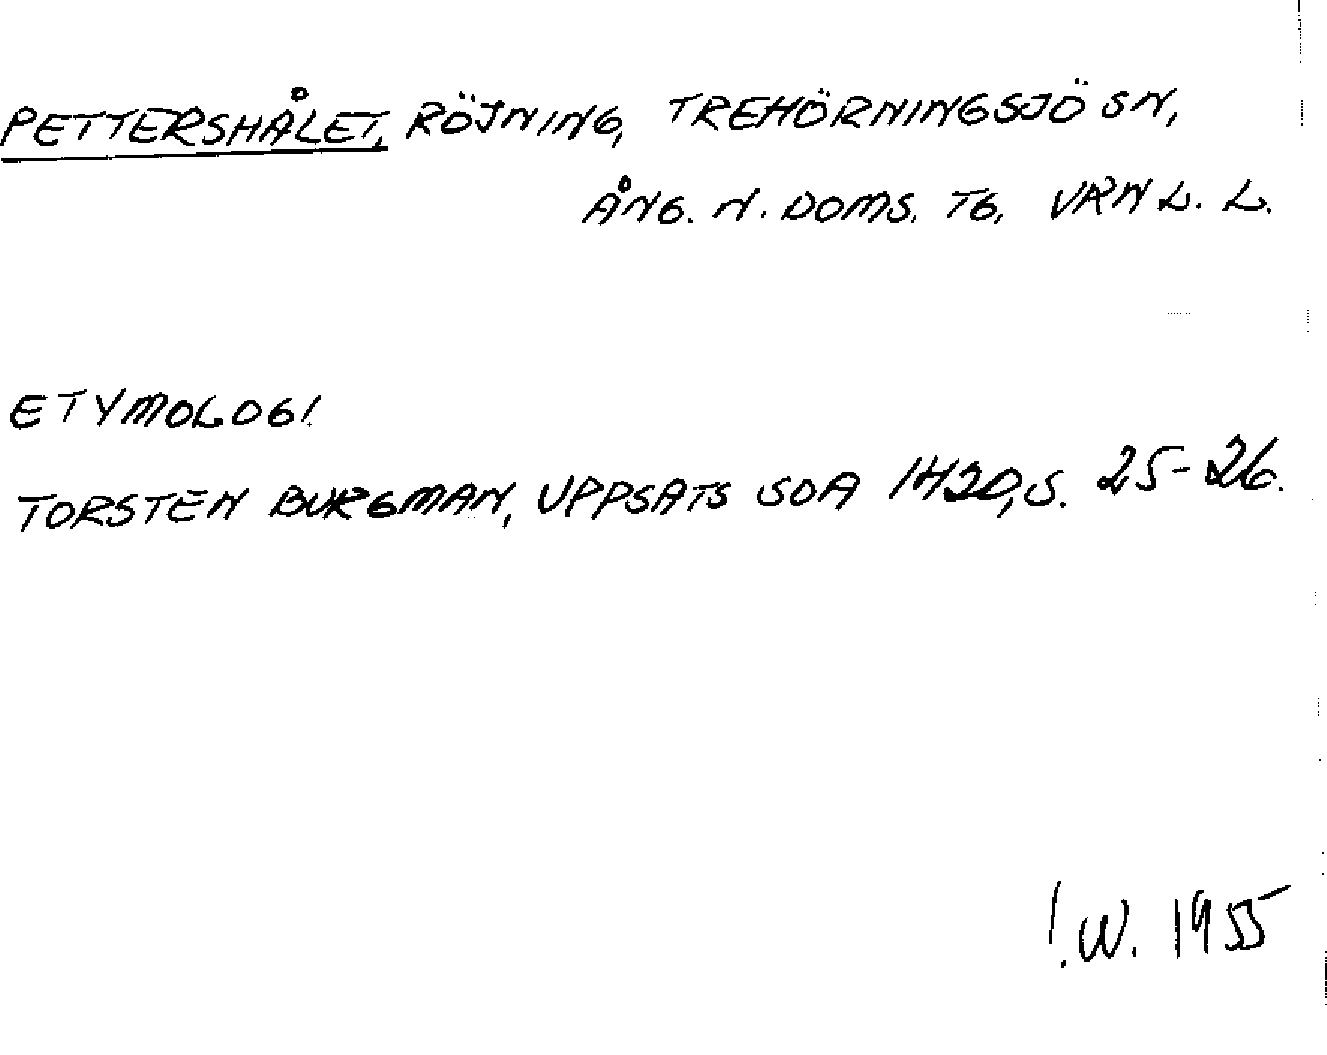 PETTERSHÅLET, RÖJNING, TREHÖRNINGSJÖ SN,
ÅNG. N. DOMS. TG, VRNL. L.
ETYMOLOGI
TORSTEN BURGMAN, UPPSATS SOA 1420, S. 25-26.
!W. 1955